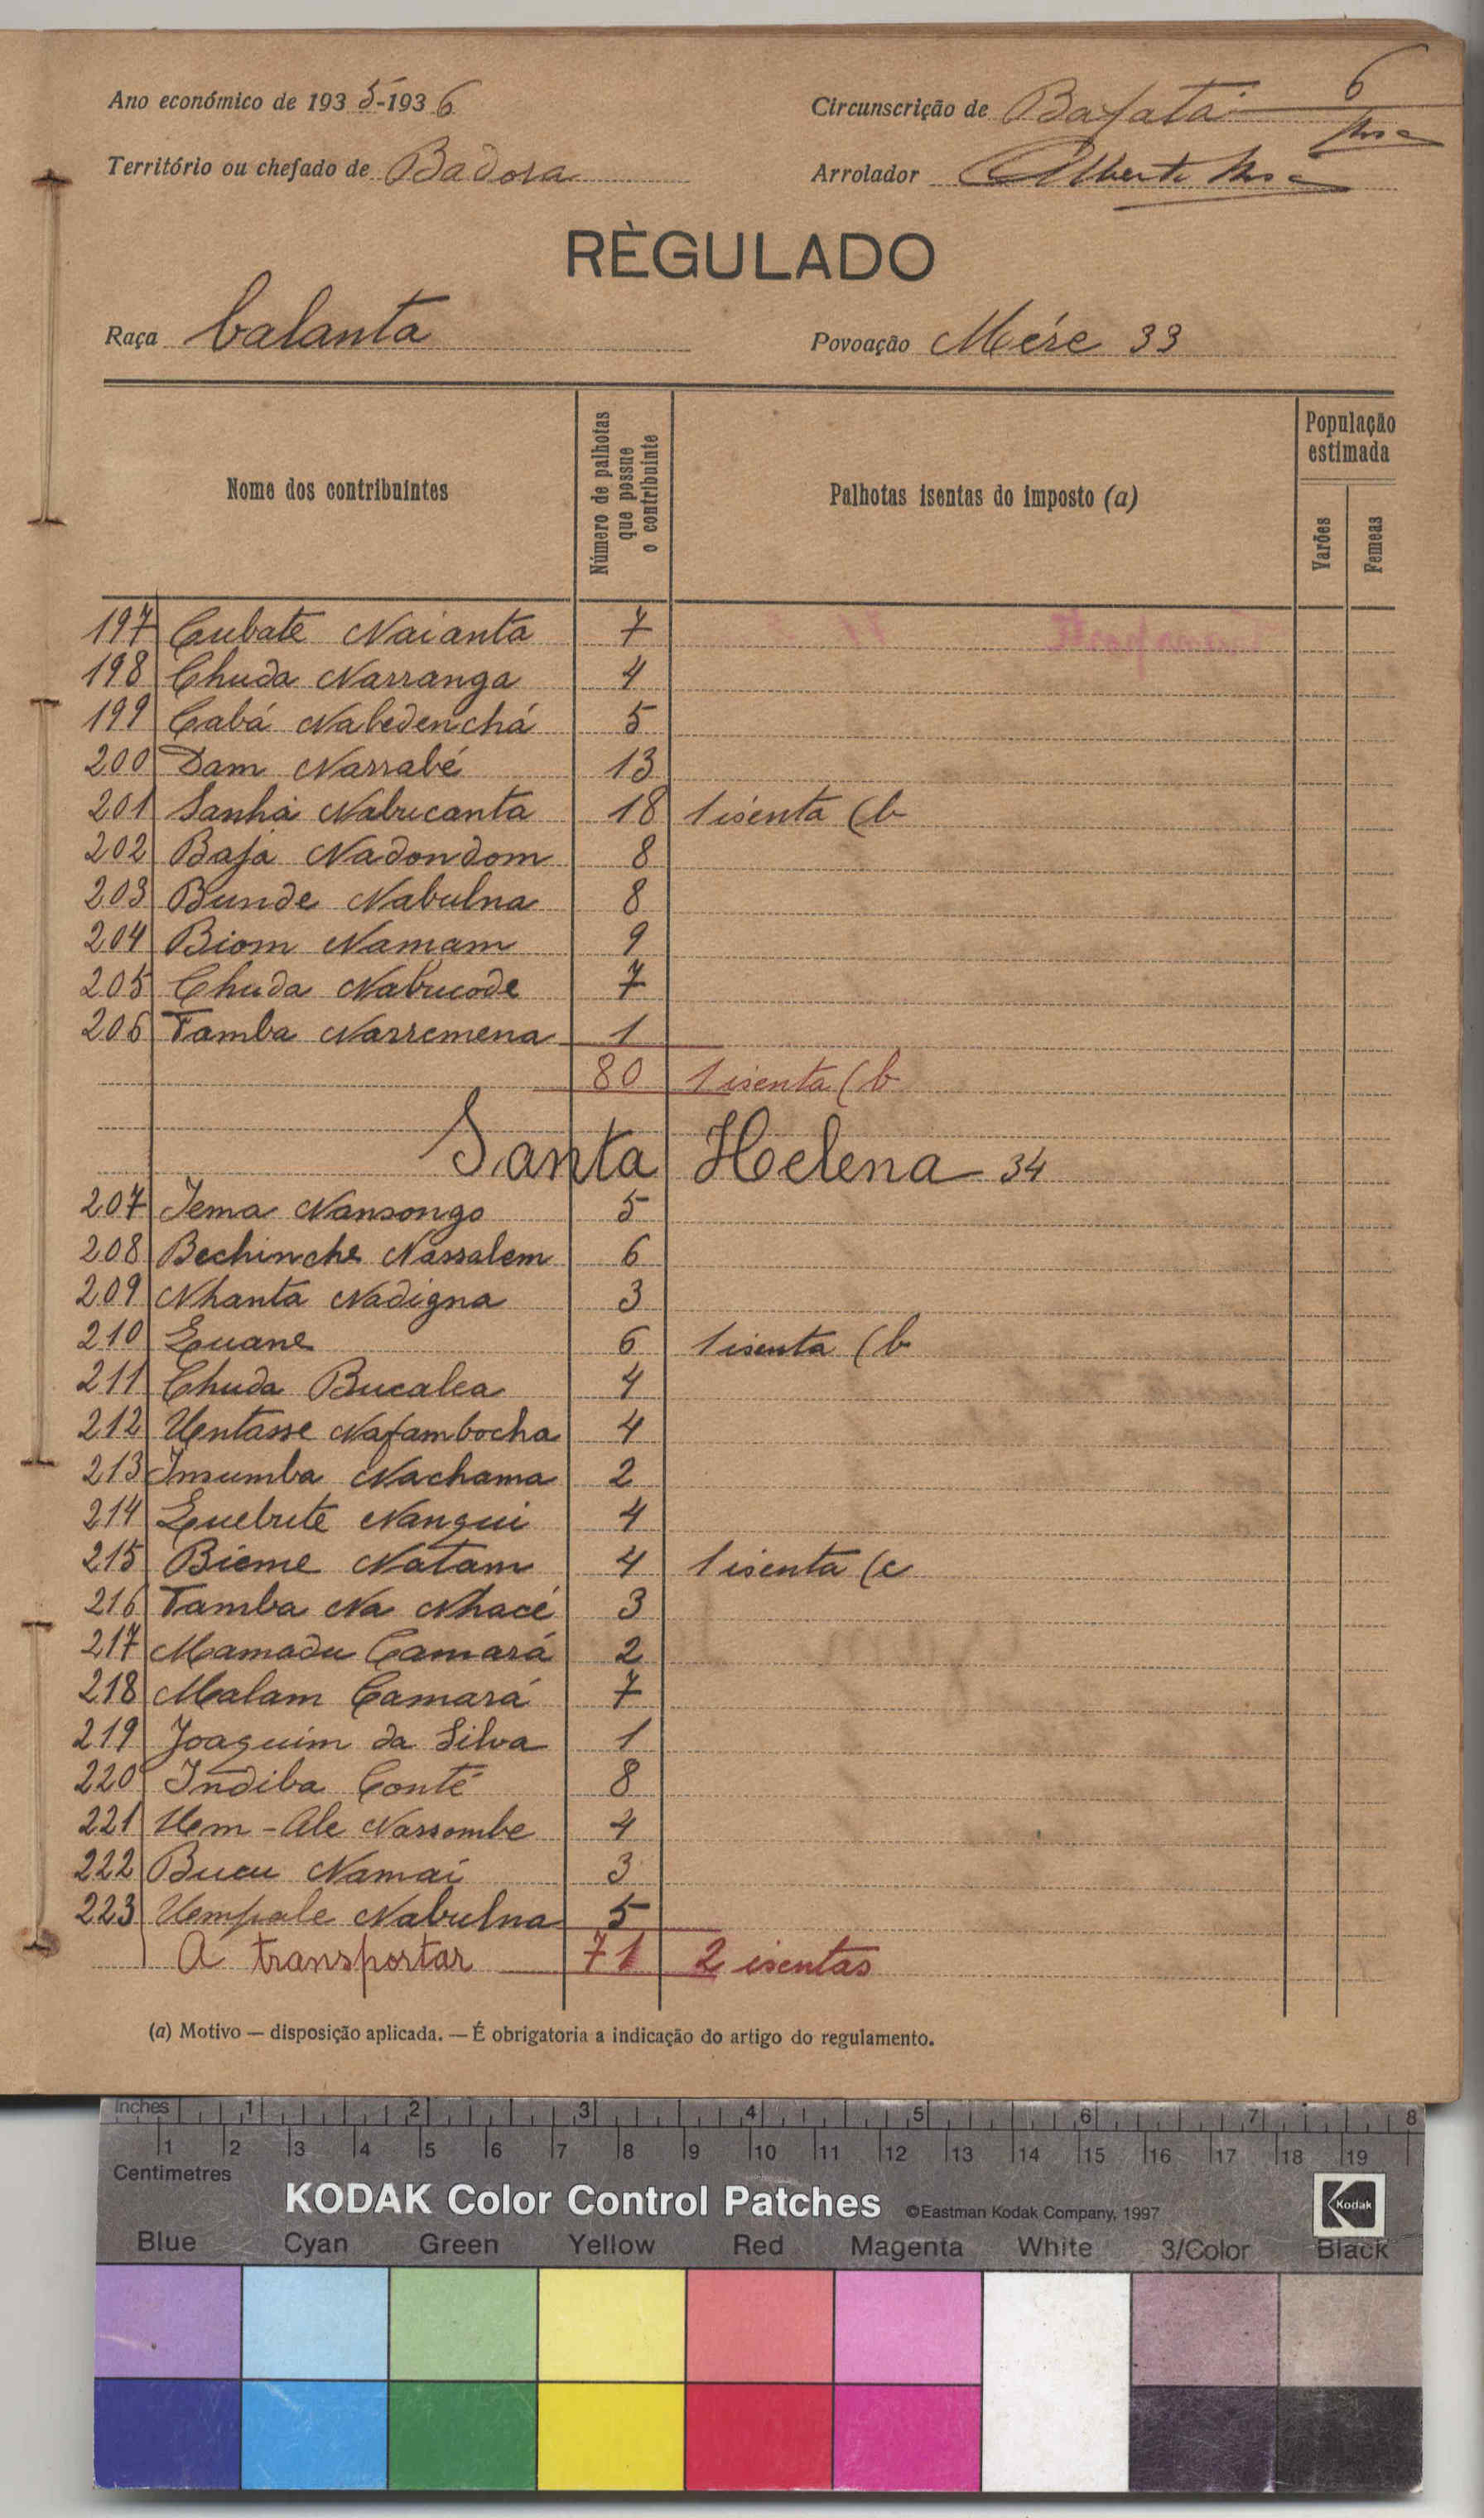 6
Ano económico de 1935-1936 Circunscrição de Bafatá
Território ou chefado de Badora Arrolador Alberto
RÈGULADO
Raça balanta Povoação Mére 33
Nome dos contribuintes Número de palhotas que possue o contribuinte Palhotas isentas do imposto (a) População estimada Varões Femeas
197 Cubate Naianta 7
198 Chuda Narranga 4
199 Cabá Nabedenchá 5
200 Dam Narrabé 13
201 Sanhá Nabucanta 18 1 isenta (b
202 Bajá Nadondom 8
203 Bunde Nabulna 8
204 Biom Namam 9
205 Chuda Nabucode 7
206 Tamba Narremena 1
80 1 isenta (b
Santa Helena 34
207 Jema Nansongo 5
208 Bechinche Nassalem 6
209 Nhanta Nadigna 3
210 Luane 6 1 isenta (b
211 Chuda Bucalea 4
212 Uentasse Nafambocha 4
213 Insumba Nachama 2
214 Quebute Nangui 4
215 Bieme Natam 4 1 isenta (c
216 Tamba Na Nhacé 3
217 Mamadu Camará 2
218 Malam Camará 7
219 Joaquim da Silva 1
220 Indiba Conté 8
221 Uem-Ale Nassombe 4
222 Bucu Namai 3
223 Uempale Nabulna 5
A transportar 71 2 isentas
(a) Motivo — disposição aplicada. — É obrigatoria a indicação do artigo do regulamento.
Inches 1 2 3 4 5 6 7 8
1 2 3 4 5 6 7 8 9 10 11 12 13 14 15 16 17 18 19
Centimetres
KODAK Color Control Patches ©Eastman Kodak Company, 1997 Kodak
Blue Cyan Green Yellow Red Magenta White 3/Color Black